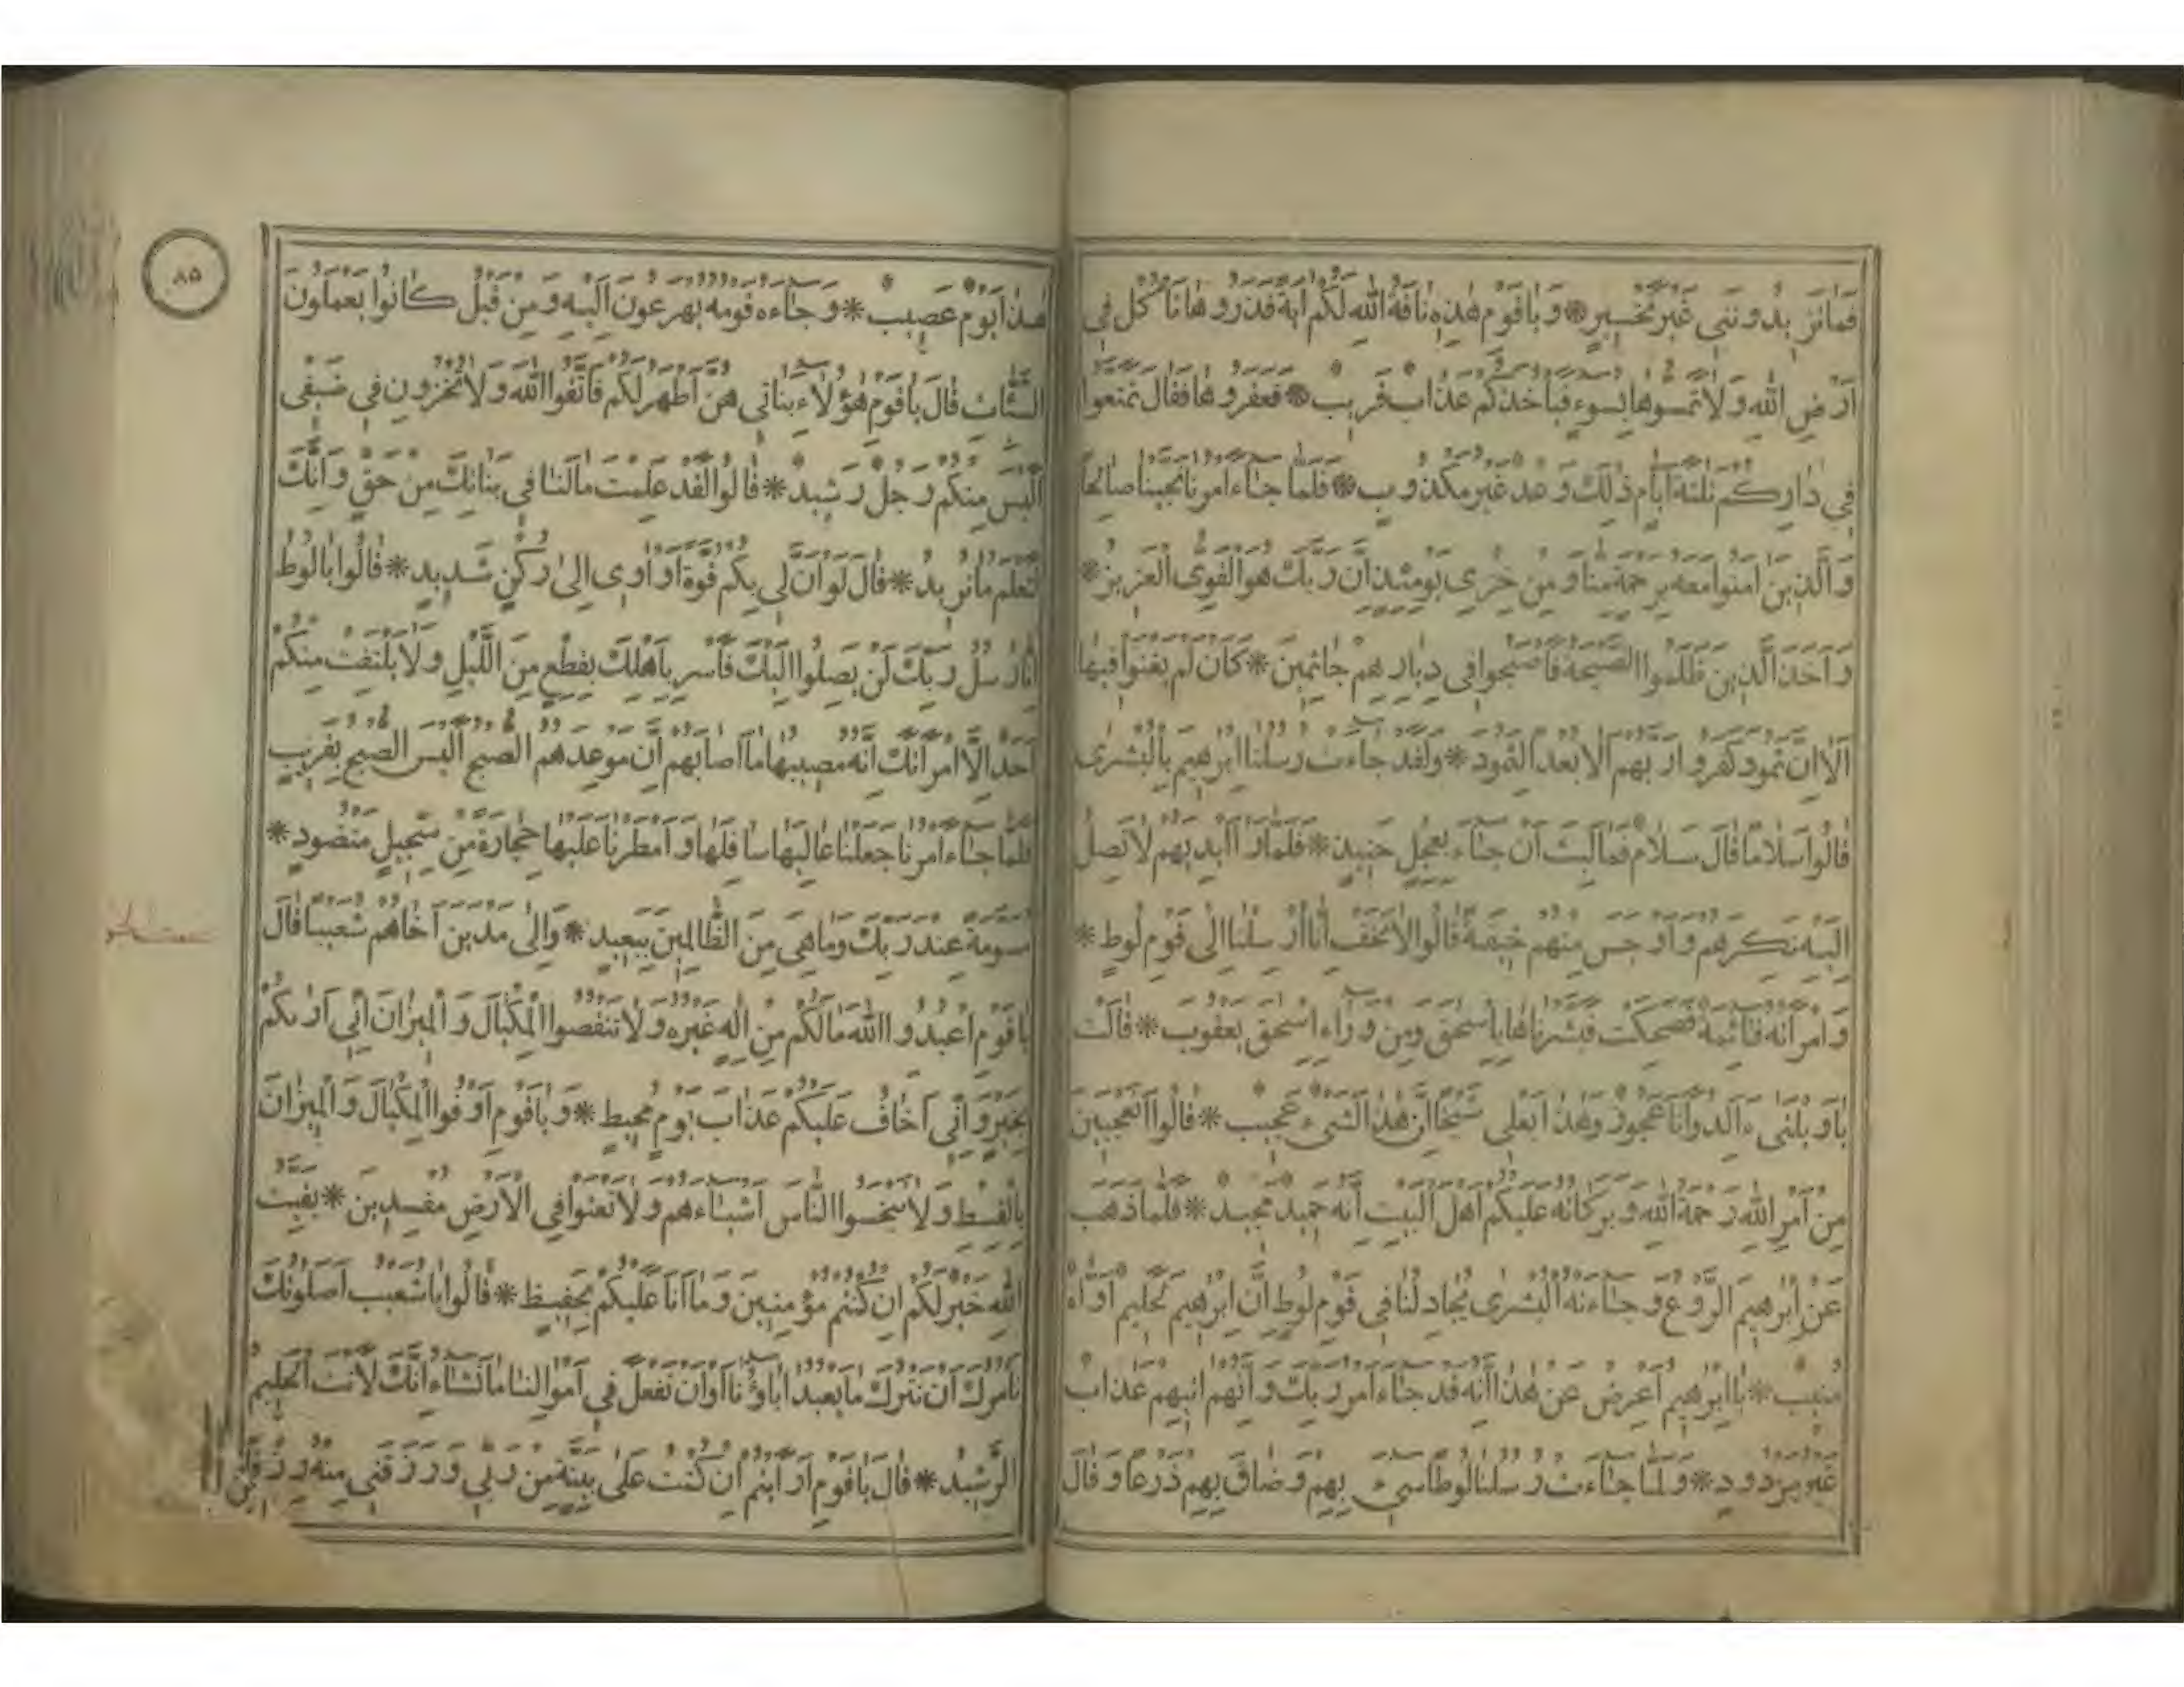 فَمَا تَزِيدُونَنِي غَيْرَ تَخْسِيرٍ * وَيَا قَوْمِ هٰذِهِ نَاقَةُ اللهِ لَكُمْ آيَةً فَذَرُوهَا تَأْكُلْ فِي
أَرْضِ اللهِ وَلَا تَمَسُّوهَا بِسُوءٍ فَيَأْخُذَكُمْ عَذَابٌ قَرِيبٌ * فَعَقَرُوهَا فَقَالَ تَمَتَّعُوا
فِي دَارِكُمْ ثَلٰثَةَ أَيَّامٍ ذٰلِكَ وَعْدٌ غَيْرُ مَكْذُوبٍ * فَلَمَّا جَاءَ أَمْرُنَا نَجَّيْنَا صَالِحًا
وَالَّذِينَ آمَنُوا مَعَهُ بِرَحْمَةٍ مِنَّا وَمِنْ خِزْيِ يَوْمِئِذٍ إِنَّ رَبَّكَ هُوَ الْقَوِيُّ الْعَزِيزُ *
وَأَخَذَ الَّذِينَ ظَلَمُوا الصَّيْحَةُ فَأَصْبَحُوا فِي دِيَارِهِمْ جَاثِمِينَ * كَأَنْ لَمْ يَغْنَوْا فِيهَا
أَلَا إِنَّ ثَمُودَ كَفَرُوا رَبَّهُمْ أَلَا بُعْدًا لِثَمُودَ * وَلَقَدْ جَاءَتْ رُسُلُنَا إِبْرٰهِيمَ بِالْبُشْرَى
قَالُوا سَلَامًا قَالَ سَلَامٌ فَمَا لَبِثَ أَنْ جَاءَ بِعِجْلٍ حَنِيذٍ * فَلَمَّا رَأَىٰ أَيْدِيَهُمْ لَا تَصِلُ
إِلَيْهِ نَكِرَهُمْ وَأَوْجَسَ مِنْهُمْ خِيفَةً قَالُوا لَا تَخَفْ إِنَّا أُرْسِلْنَا إِلَى قَوْمِ لُوطٍ *
وَامْرَأَتُهُ قَائِمَةٌ فَضَحِكَتْ فَبَشَّرْنَاهَا بِإِسْحٰقَ وَمِنْ وَرَاءِ إِسْحٰقَ يَعْقُوبَ * قَالَتْ
يَا وَيْلَتَى ءَأَلِدُ وَأَنَا عَجُوزٌ وَهٰذَا بَعْلِي شَيْخًا إِنَّ هٰذَا لَشَيْءٌ عَجِيبٌ * قَالُوا أَتَعْجَبِينَ
مِنْ أَمْرِ اللهِ رَحْمَةُ اللهِ وَبَرَكَاتُهُ عَلَيْكُمْ أَهْلَ الْبَيْتِ إِنَّهُ حَمِيدٌ مَجِيدٌ * فَلَمَّا ذَهَبَ
عَنْ إِبْرٰهِيمَ الرَّوْعُ وَجَاءَتْهُ الْبُشْرَى يُجَادِلُنَا فِي قَوْمِ لُوطٍ إِنَّ إِبْرٰهِيمَ لَحَلِيمٌ أَوَّاهٌ
مُنِيبٌ * يَا إِبْرٰهِيمُ أَعْرِضْ عَنْ هٰذَا إِنَّهُ قَدْ جَاءَ أَمْرُ رَبِّكَ وَإِنَّهُمْ آتِيهِمْ عَذَابٌ
غَيْرُ مَرْدُودٍ * وَلَمَّا جَاءَتْ رُسُلُنَا لُوطًا سِيءَ بِهِمْ وَضَاقَ بِهِمْ ذَرْعًا وَقَالَ
٨٥
هٰذَا يَوْمٌ عَصِيبٌ * وَجَاءَهُ قَوْمُهُ يُهْرَعُونَ إِلَيْهِ وَمِنْ قَبْلُ كَانُوا يَعْمَلُونَ
السَّيِّئَاتِ قَالَ يَا قَوْمِ هٰؤُلَاءِ بَنَاتِي هُنَّ أَطْهَرُ لَكُمْ فَاتَّقُوا اللهَ وَلَا تُخْزُونِ فِي ضَيْفِي
أَلَيْسَ مِنْكُمْ رَجُلٌ رَشِيدٌ * قَالُوا لَقَدْ عَلِمْتَ مَا لَنَا فِي بَنَاتِكَ مِنْ حَقٍّ وَإِنَّكَ
لَتَعْلَمُ مَا نُرِيدُ * قَالَ لَوْ أَنَّ لِي بِكُمْ قُوَّةً أَوْ آوِي إِلَى رُكْنٍ شَدِيدٍ * قَالُوا يَا لُوطُ
إِنَّا رُسُلُ رَبِّكَ لَنْ يَصِلُوا إِلَيْكَ فَأَسْرِ بِأَهْلِكَ بِقِطْعٍ مِنَ اللَّيْلِ وَلَا يَلْتَفِتْ مِنْكُمْ
أَحَدٌ إِلَّا امْرَأَتَكَ إِنَّهُ مُصِيبُهَا مَا أَصَابَهُمْ إِنَّ مَوْعِدَهُمُ الصُّبْحُ أَلَيْسَ الصُّبْحُ بِقَرِيبٍ
فَلَمَّا جَاءَ أَمْرُنَا جَعَلْنَا عَالِيَهَا سَافِلَهَا وَأَمْطَرْنَا عَلَيْهَا حِجَارَةً مِنْ سِجِّيلٍ مَنْضُودٍ *
مُسَوَّمَةً عِنْدَ رَبِّكَ وَمَا هِيَ مِنَ الظَّالِمِينَ بِبَعِيدٍ * وَإِلَى مَدْيَنَ أَخَاهُمْ شُعَيْبًا قَالَ
يَا قَوْمِ اعْبُدُوا اللهَ مَا لَكُمْ مِنْ إِلٰهٍ غَيْرُهُ وَلَا تَنْقُصُوا الْمِكْيَالَ وَالْمِيزَانَ إِنِّي أَرٰيكُمْ
بِخَيْرٍ وَإِنِّي أَخَافُ عَلَيْكُمْ عَذَابَ يَوْمٍ مُحِيطٍ * وَيَا قَوْمِ أَوْفُوا الْمِكْيَالَ وَالْمِيزَانَ
بِالْقِسْطِ وَلَا تَبْخَسُوا النَّاسَ أَشْيَاءَهُمْ وَلَا تَعْثَوْا فِي الْأَرْضِ مُفْسِدِينَ * بَقِيَّتُ
اللهِ خَيْرٌ لَكُمْ إِنْ كُنْتُمْ مُؤْمِنِينَ وَمَا أَنَا عَلَيْكُمْ بِحَفِيظٍ * قَالُوا يَا شُعَيْبُ أَصَلٰوتُكَ
تَأْمُرُكَ أَنْ نَتْرُكَ مَا يَعْبُدُ آبَاؤُنَا أَوْ أَنْ نَفْعَلَ فِي أَمْوَالِنَا مَا نَشَاءُ إِنَّكَ لَأَنْتَ الْحَلِيمُ
الرَّشِيدُ * قَالَ يَا قَوْمِ أَرَأَيْتُمْ إِنْ كُنْتُ عَلَى بَيِّنَةٍ مِنْ رَبِّي وَرَزَقَنِي مِنْهُ رِزْقًا